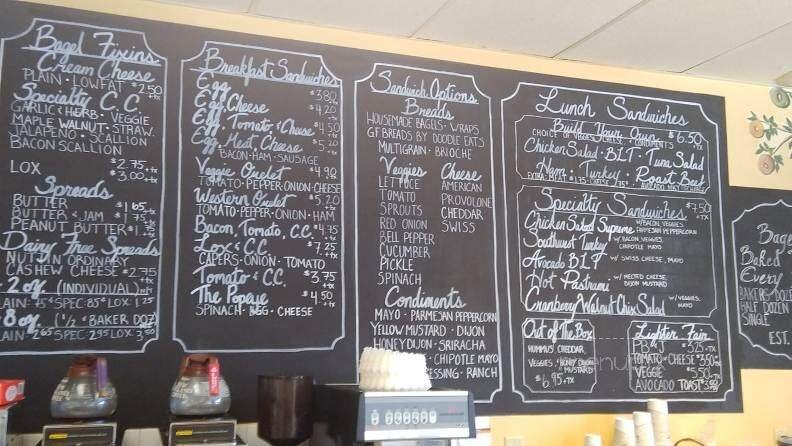 Bagel Fixins
Cream Cheese
PLAIN · LOWFAT $2.50 +tx
Specialty C.C.
GARLIC & HERB · VEGGIE
MAPLE WALNUT · STRAW.
JALAPENO & SCALLION
BACON SCALLION
$2.75 +tx
LOX $3.00 +tx
Spreads
BUTTER $1.65 +tx
BUTTER & JAM $1.75
PEANUT BUTTER $1.
Dairy Free Spreads
NUTTIN ORDINARY
CASHEW CHEESE $2.75 +tx
2 oz (INDIVIDUAL)
PLAIN · 75¢ SPEC: 85¢ LOX 1.25
8 oz. (½ & BAKER DOZ)
PLAIN · 2.65 SPEC · 2.95 LOX 3.50
Breakfast Sandwiches
Egg $3.82
Egg, Cheese $4.20
Egg, Tomato & Cheese $4.50
Egg, Meat, Cheese $5.20
BACON · HAM · SAUSAGE
Veggie Omelet $4.98
TOMATO · PEPPER · ONION · CHEESE
Western Omelet $5.20
TOMATO · PEPPER · ONION · HAM
Bacon, Tomato, C.C. $4.75
Lox & C.C. $7.25
CAPERS · ONION · TOMATO
Tomato & C.C. $3.75
The Popeye $4.50
SPINACH · EGG · CHEESE
Sandwich Options
Breads
HOUSEMADE BAGELS · WRAPS
GF BREADS BY DOODLE EATS
MULTIGRAIN · BRIOCHE
Veggies
LETTUCE
TOMATO
SPROUTS
RED ONION
BELL PEPPER
CUCUMBER
PICKLE
SPINACH
Cheese
AMERICAN
PROVOLONE
CHEDDAR
SWISS
Condiments
MAYO · PARMESAN PEPPERCORN
YELLOW MUSTARD · DIJON
HONEY DIJON · SRIRACHA
CHIPOTLE MAYO
DRESSING · RANCH
Lunch Sandwiches
Build Your Own $6.50 +TX
CHOICE OF VEGGIES, CHEESE & CONDIMENTS
Chicken Salad · B.L.T · Tuna Salad
Ham · Turkey · Roast Beef
EXTRA: MEAT $1.75 · CHEESE .75¢
Specialty Sandwiches $7.50 +TX
Chicken Salad Supreme W/ BACON, VEGGIES, PARMESAN PEPPERCORN
Southwest Turkey W/ BACON, VEGGIES, CHIPOTLE MAYO
Avocado B.L.T W/ SWISS CHEESE, MAYO
Hot Pastrami W/ MELTED CHEESE, DIJON MUSTARD
Cranberry Walnut Chix Salad W/ VEGGIES, MAYO
Out of The Box
HUMMUS, CHEDDAR,
VEGGIES, HONEY DIJON
MUSTARD
$6.95 +TX
Lighter Fair
PB & J $3.25 +TX
TOMATO · CHEESE $3.50
VEGGIE $5.50 +TX
AVOCADO TOAST $3.98
Bage
Baked
Every
BAKERS DOZE
HALF DOZEN
SINGLE
EST.